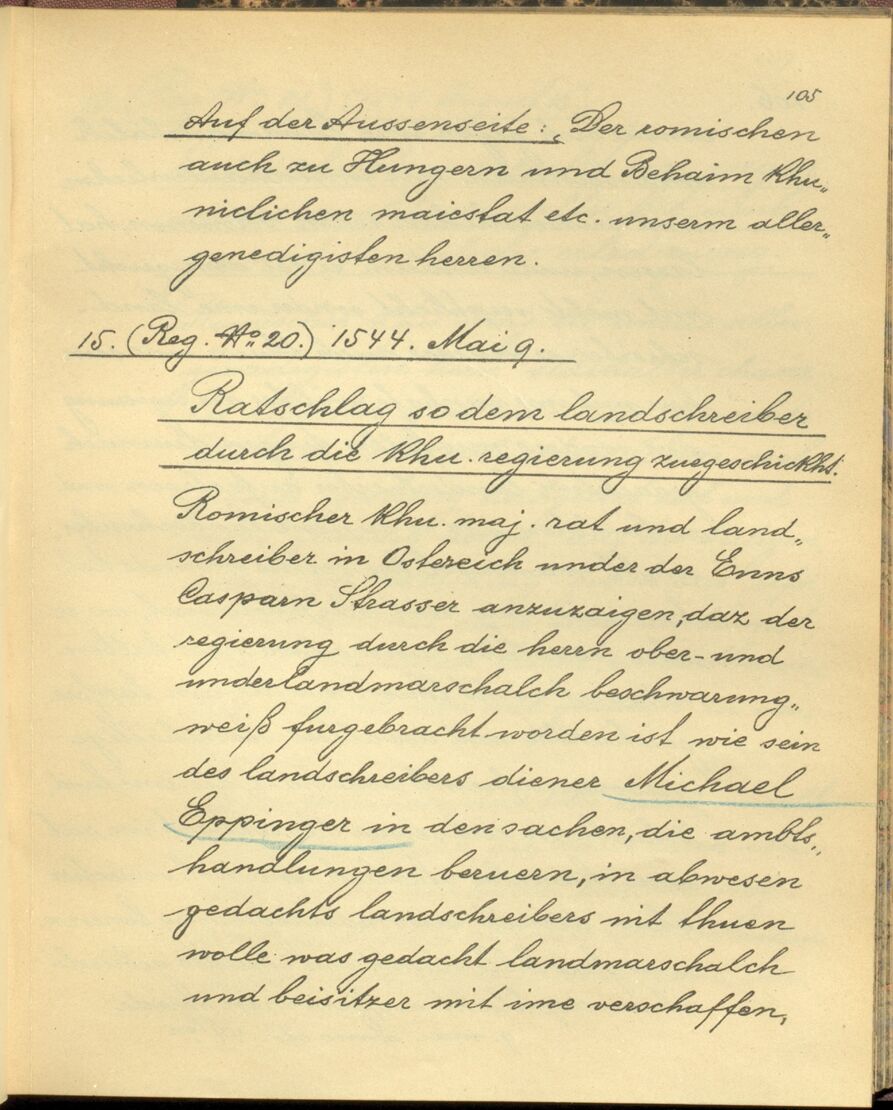 105
Auf der Aussenseite: „Der romischen
auch zu Hungern und Behaim khu„
niclichen maiestat etc. unserm aller„
genedigisten herren.
15. (Reg. No 20.) 1544. Mai 9.
Ratschlag so dem landschreiber
durch die khu. regierung zuegeschickht.
Romischer khu. maj. rat und land„
schreiber in Ostereich under der Enns
Casparn Strasser anzuzaigen, daz der
regierung durch die herrn ober- und
underlandmarschalch beschwarung„
weiß furgebracht worden ist wie sein
des landschreibers diener Michael
Eppinger in den sachen, die ambts„
handlungen beruern, in abwesen
gedachts landschreibers nit thuen
wolle was gedacht landmarschalch
und beisitzer mit ime verschaffen,